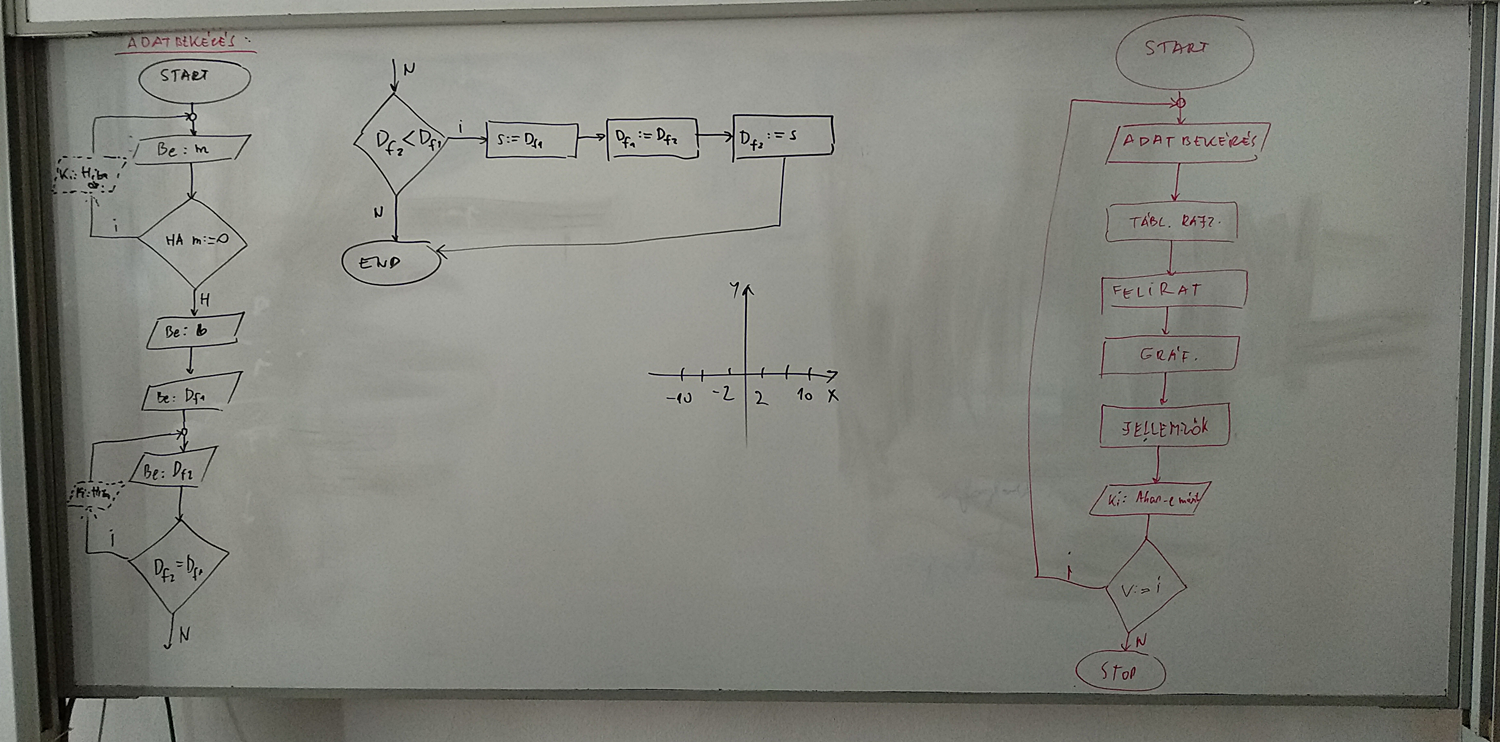 ADATBEKÉRÉS:
START
Be: m
Ki: Hiba
i
HA m:=0
H
Be: b
Be: Df1
Be: Df2
Ki: Hiba
i
Df2=Df1
N
N
Df2<Df1
i
s:=Df1
Df1:=Df2
Df2:=s
N
END
y
-10 -2 2 10 x
START
ADATBEKÉRÉS
TÁBL. RAJZ.
FELIRAT
GRÁF.
JELLEMZŐK
Ki: Akar-e
i
V:=i
N
STOP